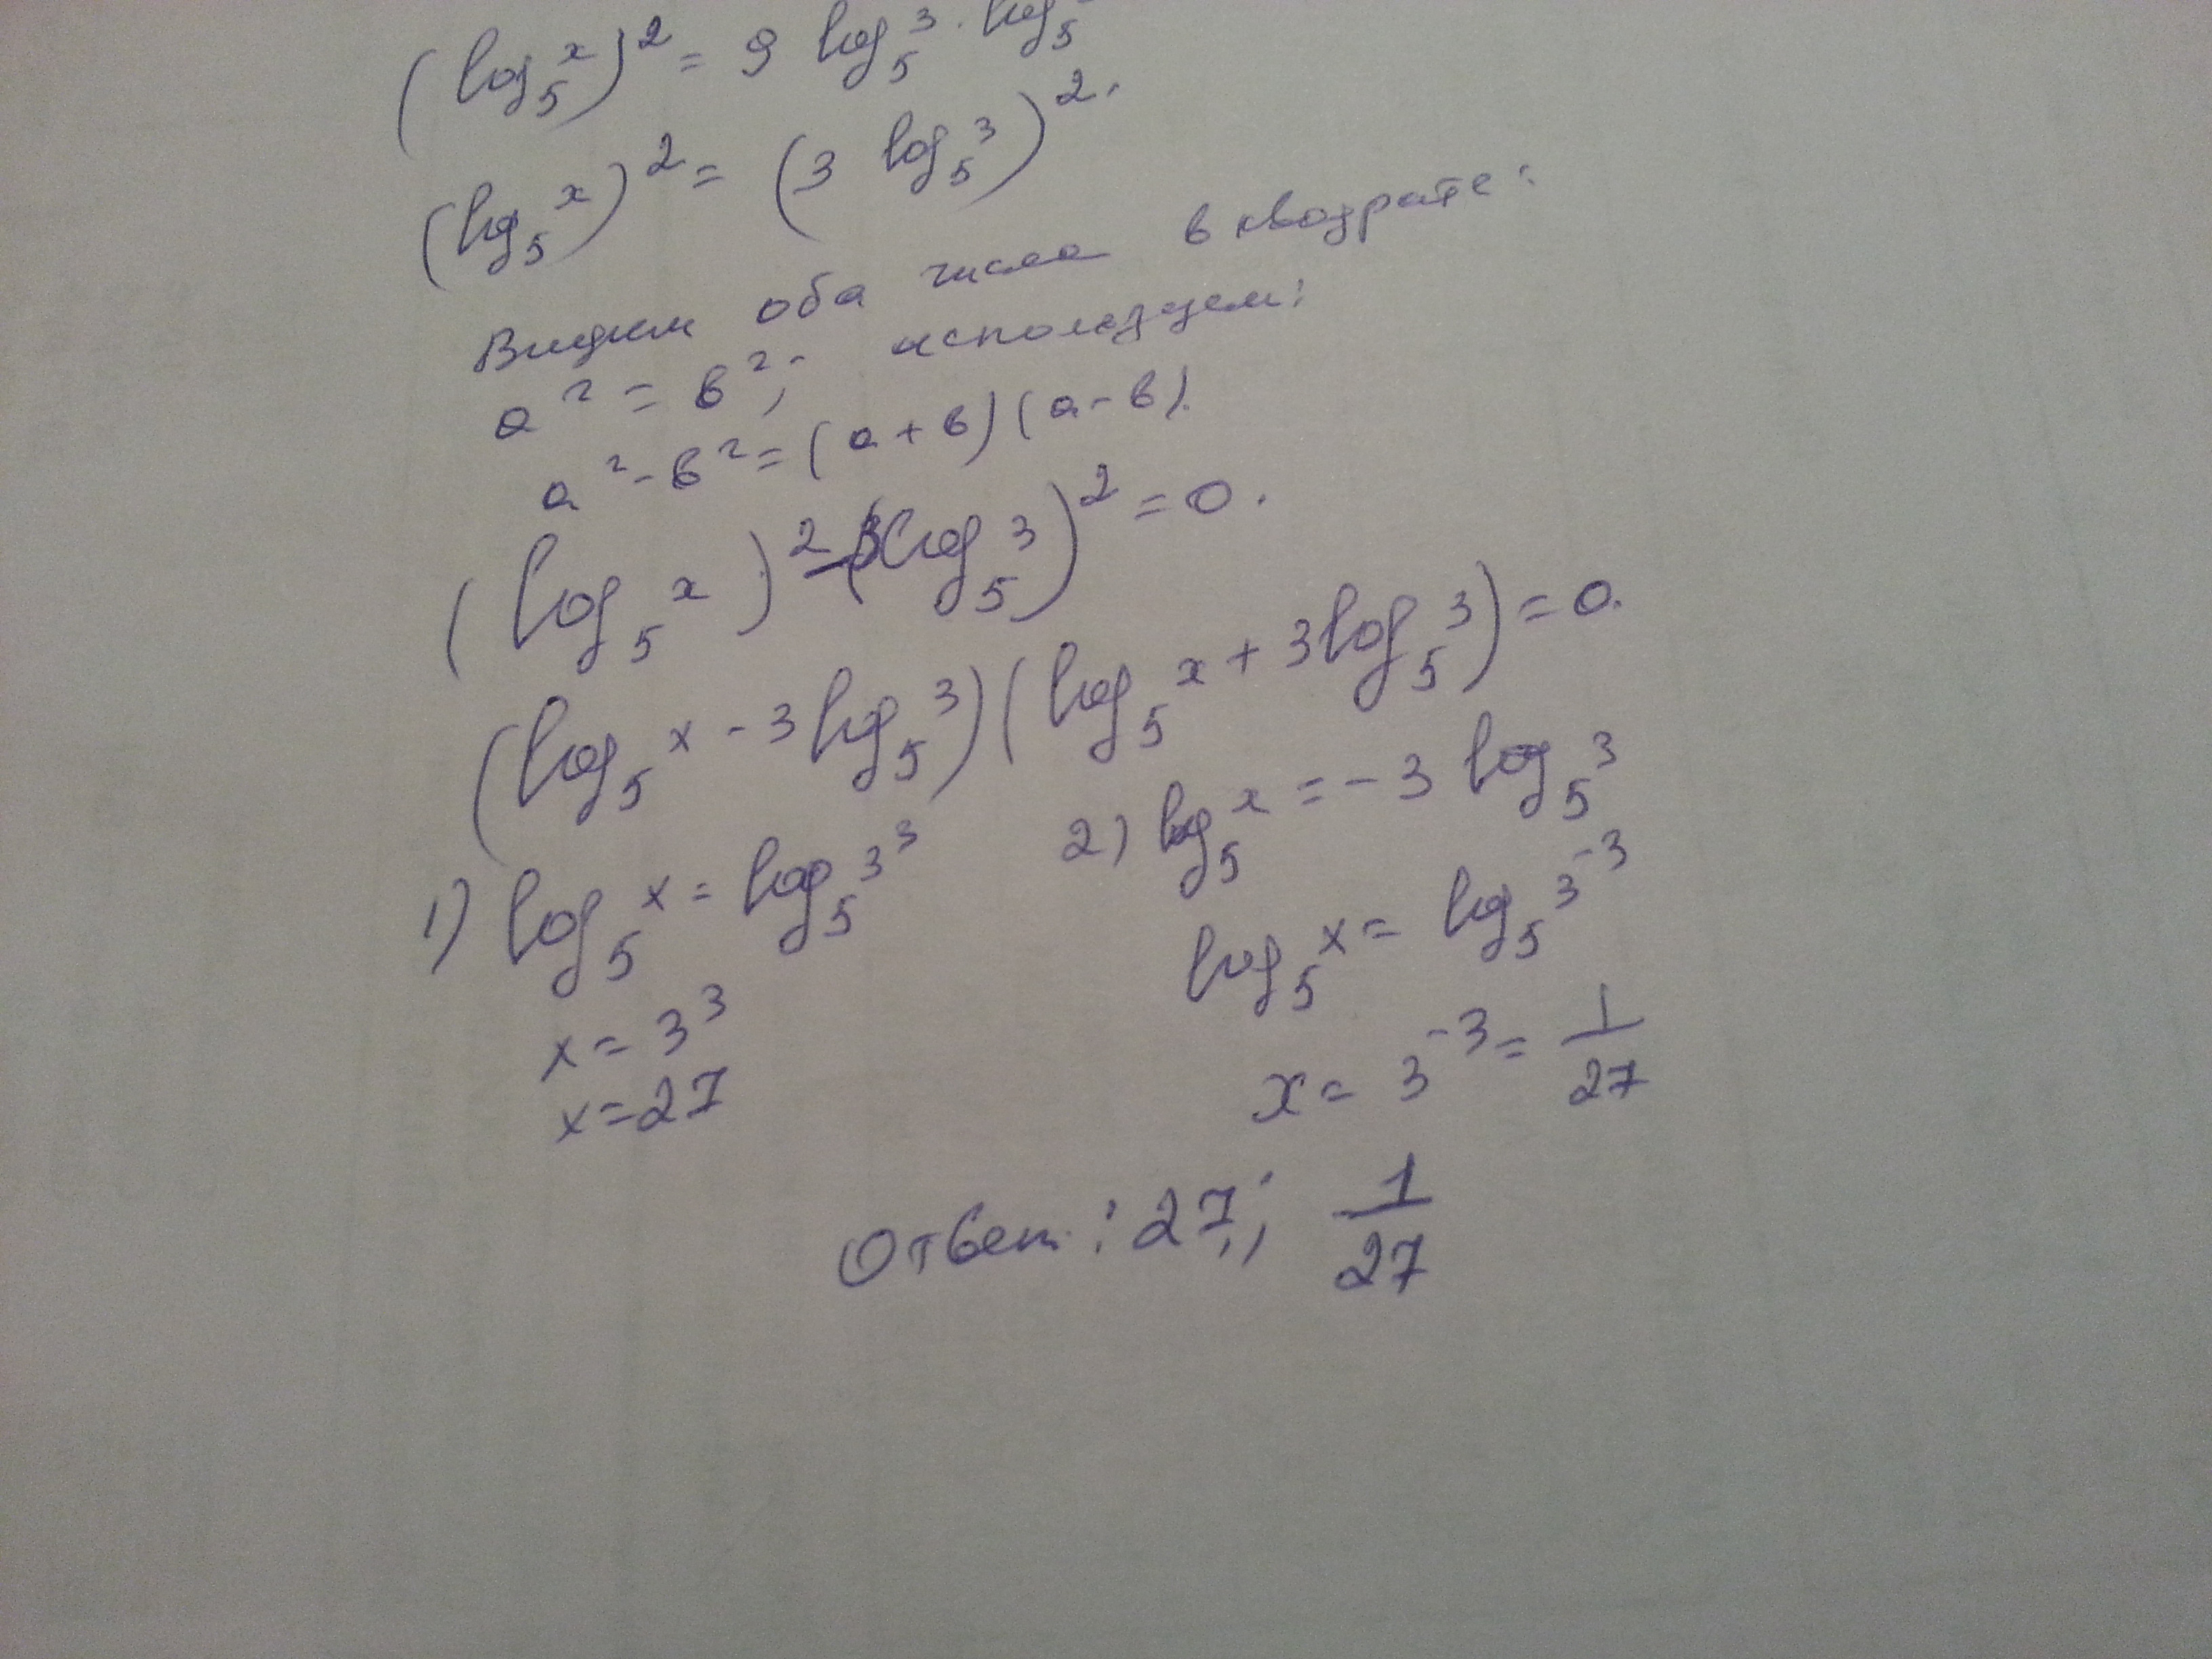 (log₅ x)² = 9 log₅ 3 · log₅
(log₅ x)² = (3 log₅ 3)².
Видим оба числа в квадрате:
a² = b²; используем:
a² - b² = (a + b)(a - b).
(log₅ x)² - (3log₅ 3)² = 0.
(log₅ x - 3 log₅ 3)(log₅ x + 3 log₅ 3) = 0.
1) log₅ x = log₅ 3³
x = 3³
x = 27
2) log₅ x = -3 log₅ 3
log₅ x = log₅ 3⁻³
x = 3⁻³ = 1/27
Ответ: 27; 1/27